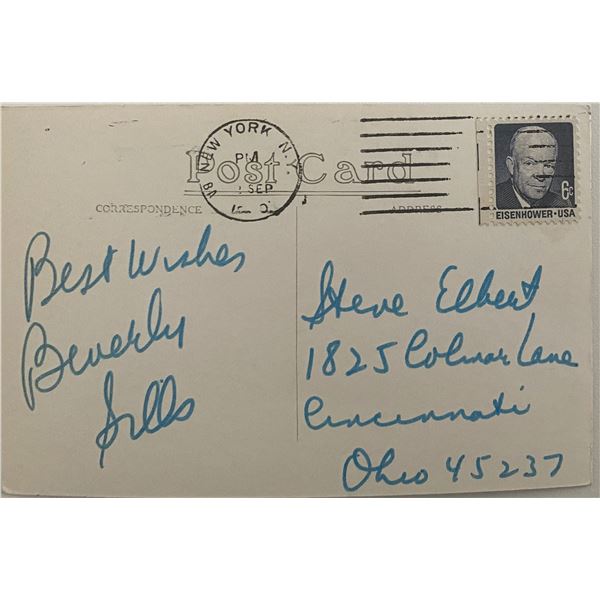 NEW YORK, N.Y.
PM
SEP
Post Card
CORRESPONDENCE
ADDRESS
6c
EISENHOWER·USA
Best Wishes
Beverly
Sills
Steve Elbert
1825 Colmar Lane
Cincinnati
Ohio 45237